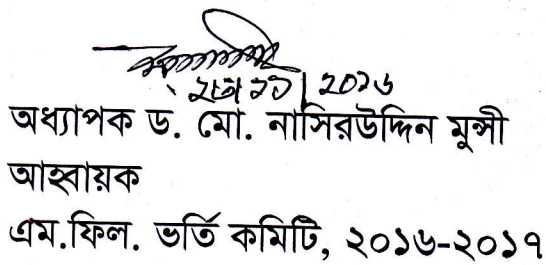 ২০১৬
অধ্যাপক ড. মো. নাসিরউদ্দিন মুন্সী
আহবায়ক
এম.ফিল. ভর্তি কমিটি, ২০১৬-২০১৭